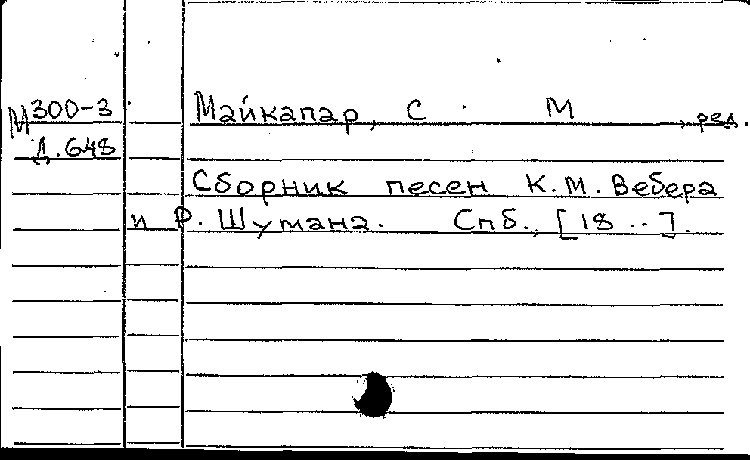 М300-3
Майкапар, С М , ред.
Д.648
Сборник песен К.М. Вебера
и Р. Шумана. Спб., [18 ..].